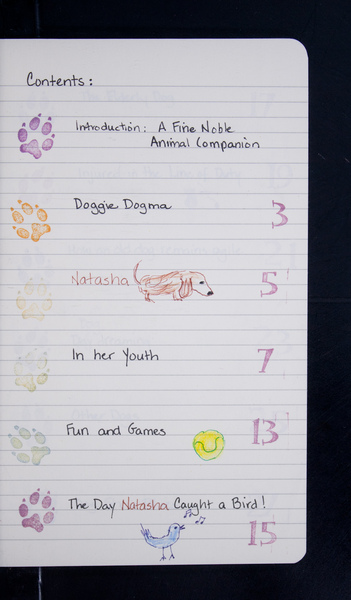 Contents:
Introduction: A Fine Noble
Animal Companion
Doggie Dogma 3
Natasha 5
In her Youth 7
Fun and Games 13
The Day Natasha Caught a Bird!
15